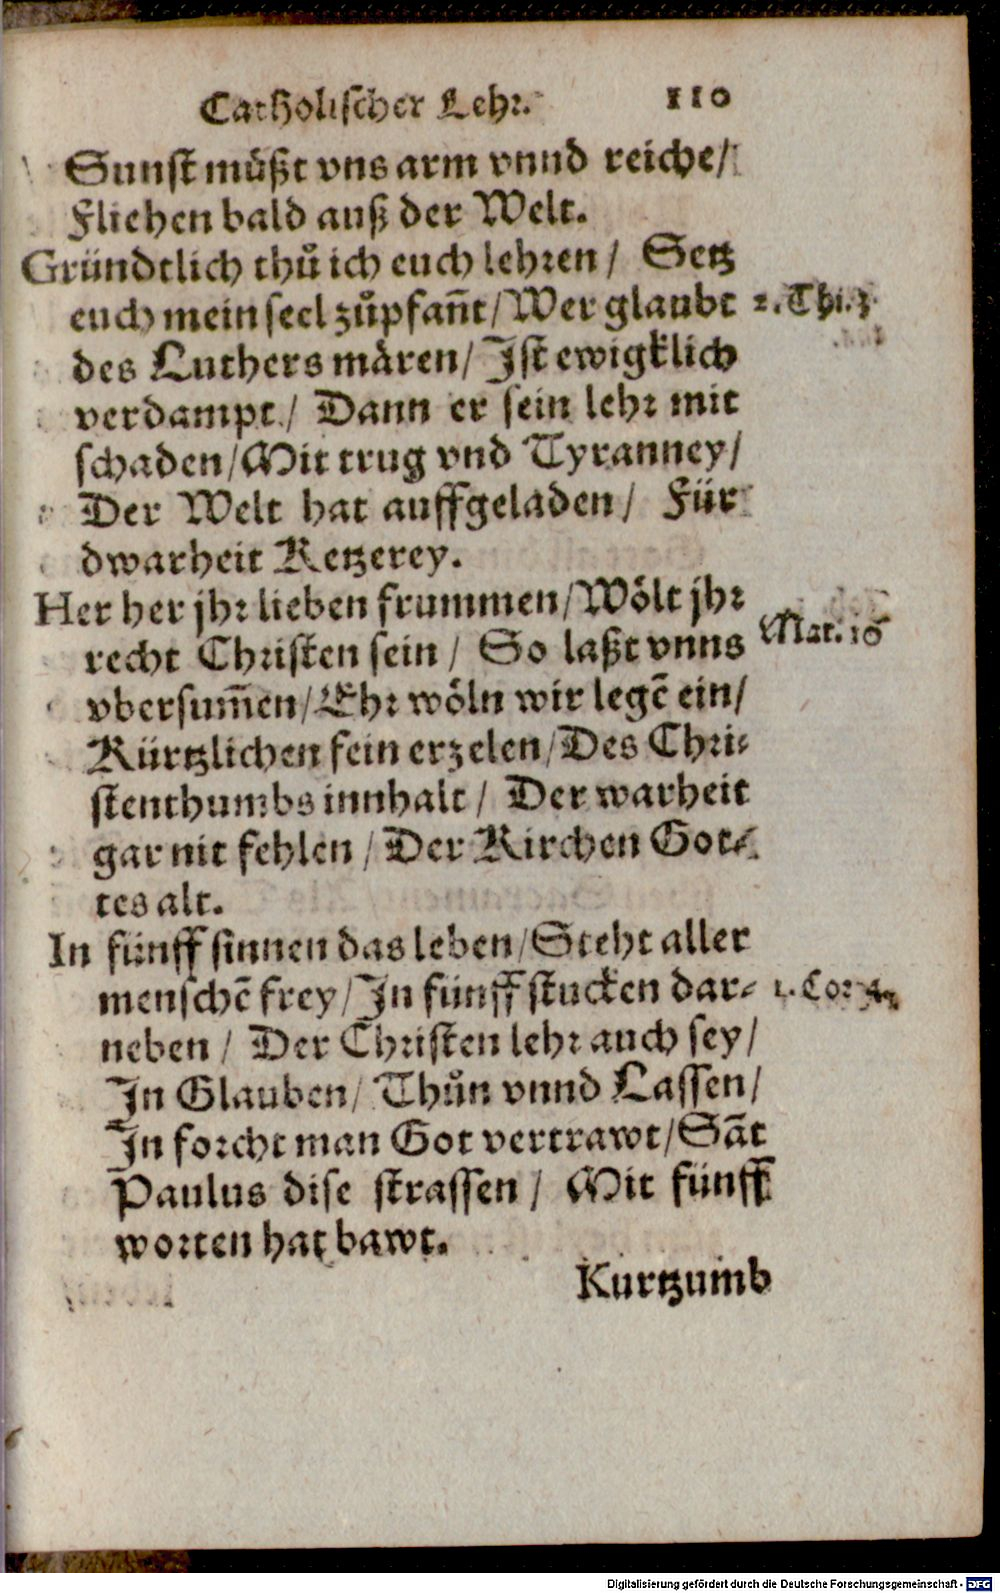 Catholischer Lehr. 110
Sunst müßt vns arm vnnd reiche/
Fliehen bald auß der Welt.
Gründtlich thuͦ ich euch lehren / Setz
euch mein seel zuͦpfan̄t/ Wer glaubt 2. Thi. 3.
des Luthers maͤren/ Ist ewigklich
verdampt / Dann er sein lehr mit
schaden/ Mit trug vnd Tyranney/
Der Welt hat auffgeladen / Für
dwarheit Ketzerey.
Her her jhr lieben frummen/ Woͤlt jhr
recht Christen sein / So laßt vnns Mat. 16
vbersum̄en/ Ehr woͤln wir legē ein/
Kürtzlichen fein erzelen/ Des Chri-
stenthumbs innhalt / Der warheit
gar nit fehlen / Der Kirchen Got-
tes alt.
In fünff sinnen das leben/ Steht aller
menschē frey/ In fünff stucken dar- 1. Cor. 14.
neben / Der Christen lehr auch sey/
In Glauben/ Thuͦn vnnd Lassen/
In forcht man Got vertrawt/ Sāt
Paulus dise strassen / Mit fünff
worten hat bawt.
Kurtzumb
Digitalisierung gefördert durch die Deutsche Forschungsgemeinschaft - DFG